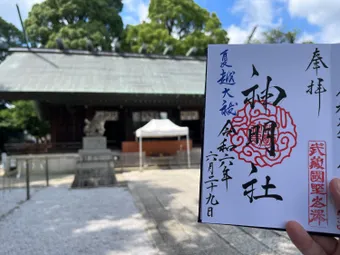 奉拝
神明社
夏越大祓
令和六年
六月二十九日
武蔵國